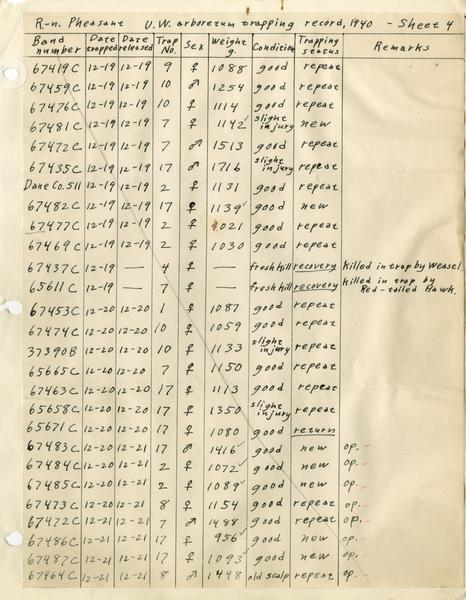 R-n. Pheasant U.W. arboretum trapping record, 1940 - Sheet 4
Band number Date trapped Date released Trap No. Sex Weight g. Condition Trapping status Remarks
67419C 12-19 12-19 9 ♀ 1088 good repeat
67459C 12-19 12-19 10 ♂ 1254 good repeat
67476C 12-19 12-19 10 ♀ 1114 good repeat
67481C 12-19 12-19 7 ♀ 1142✓ slight injury new
67472C 12-19 12-19 7 ♂ 1513 good repeat
67435C 12-19 12-19 17 ♂ 1716 slight injury repeat
Dane Co. 511 12-19 12-19 2 ♀ 1131 good repeat
67482C 12-19 12-19 17 ♀ 1139✓ good new
67477C 12-19 12-19 2 ♀ 1021 good repeat
67469C 12-19 12-19 2 ♀ 1030 good repeat
67437C 12-19 — 4 ♀ — fresh kill recovery Killed in trap by Weasel.
65611C 12-19 — 7 ♀ — fresh kill recovery Killed in trap by Red-tailed Hawk.
67453C 12-20 12-20 1 ♀ 1087 good repeat
67474C 12-20 12-20 10 ♀ 1059 good repeat
37390B 12-20 12-20 10 ♀ 1133 slight injury repeat
65665C 12-20 12-20 7 ♀ 1150 good repeat
67463C 12-20 12-20 17 ♀ 1113 good repeat
65658C 12-20 12-20 17 ♀ 1350 slight injury repeat
65671C 12-20 12-20 17 ♀ 1080 good return
67483C 12-20 12-21 17 ♂ 1416✓ good new op. -
67484C 12-20 12-21 2 ♀ 1072✓ good new op. -
67485C 12-20 12-21 2 ♀ 1089✓ good new op. -
67473C 12-20 12-21 8 ♀ 1154 good repeat op. -
67472C 12-21 12-21 7 ♂ 1488 good repeat op. -
67486C 12-21 12-21 17 ♀ 956✓ good new op. -
67487C 12-21 12-21 17 ♀ 1093✓ good new op. -
67464C 12-21 12-21 8 ♂ 1448 old scalp repeat op. -